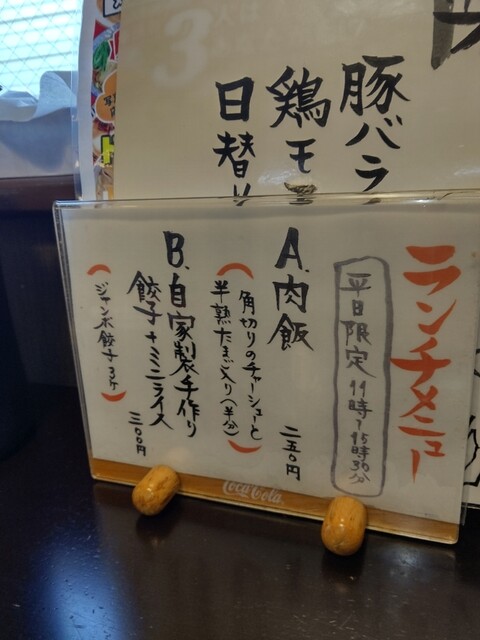 豚バラ
鶏モモ
日替り
ランチメニュー
平日限定 11時〜15時30分
A.肉飯 二五0円
(角切りのチャーシューと
半熟たまご入り(半分))
B.自家製手作り
餃子+ミニライス 三00円
(ジャンボ餃子3ケ)
Coca-Cola